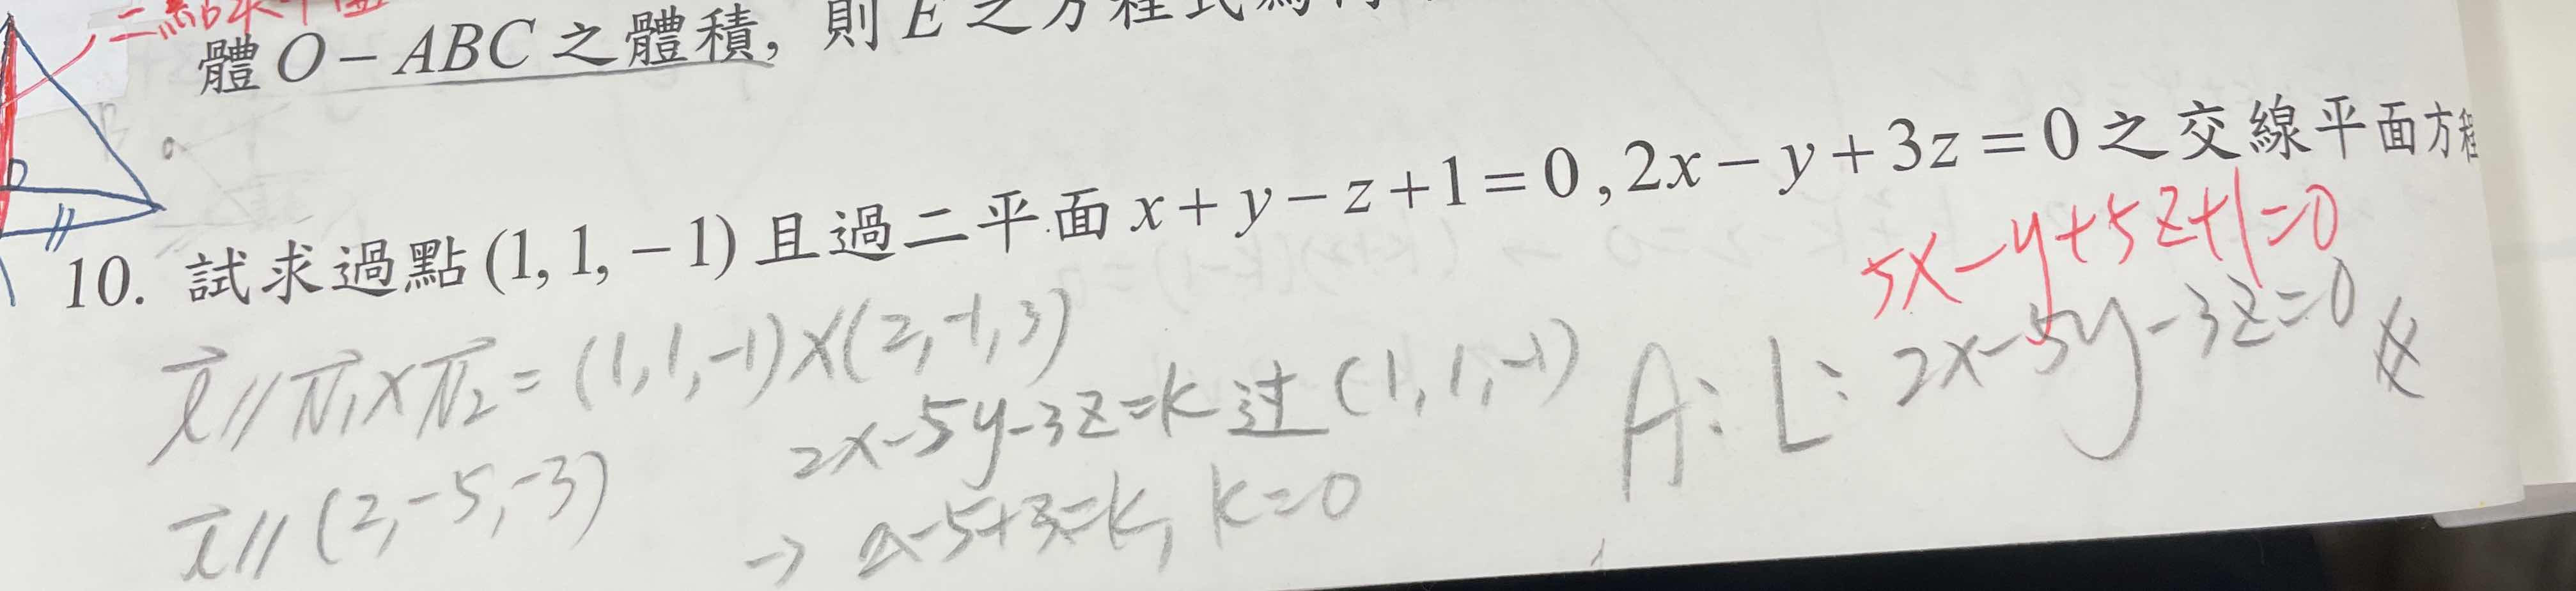 體 O-ABC 之體積, 則 E 之方程式為
10. 試求過點 (1, 1, -1) 且過二平面 x+y-z+1=0, 2x-y+3z=0 之交線平面方程
5x-y+5z+1=0
l⃗ // N₁⃗ × N₂⃗ = (1, 1, -1)×(2, -1, 3)
2x-5y-3z=k 过 (1, 1, -1)
A: L: 2x-5y-3z=0
l⃗ // (2, -5, -3)
→ 2-5+3=k, k=0